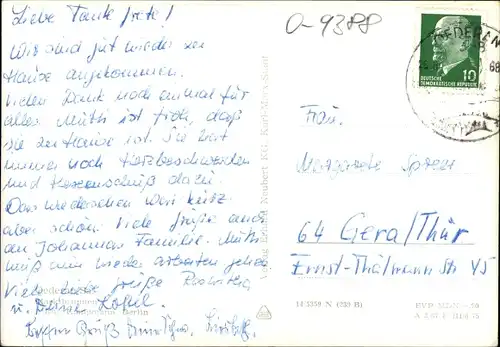 Liebe Tante Grete!
Wir sind gut wieder zu
Hause angekommen.
Vielen Dank noch einmal für
alles. Mutti ist froh, daß
sie zu Hause ist. Sie hat
immer noch Herzbeschwerden
und Hexenschuß dazu.
Das Wiedersehen war kurz
aber schön. Viele Grüße auch
an Johannas Familie. Mutti
muß nun wieder arbeiten gehen
Viele liebe Grüße
u.
0-9388
OEDERAN
68
10
DEUTSCHE
DEMOKRATISCHE REPUBLIK
Frau
Margarete
64 Gera/Thür
Ernst-Thälmann Str 45
Neubert KG, Karl-Marx-Stadt
Berlin
14 5359 N (830 B)